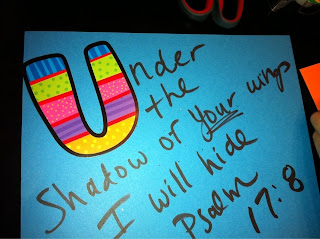 Under
the
Shadow or Your wings
I will hide
Psalm
17:8